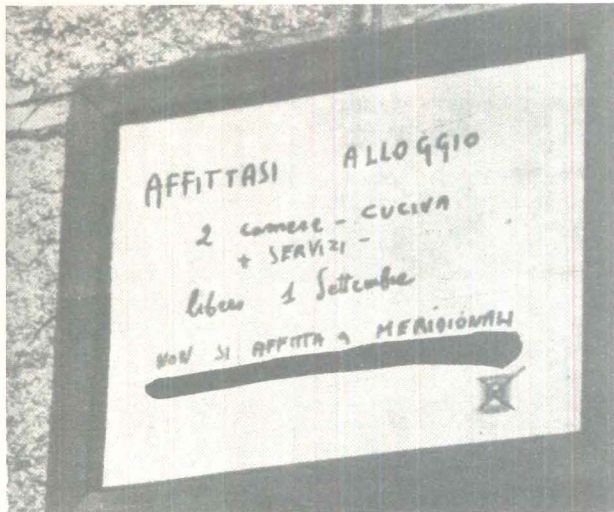 AFFITTASI ALLOGGIO
2 camere - CUCINA
+ SERVIZI -
libero 1 Settembre
NON SI AFFITTA A MERIDIONALI